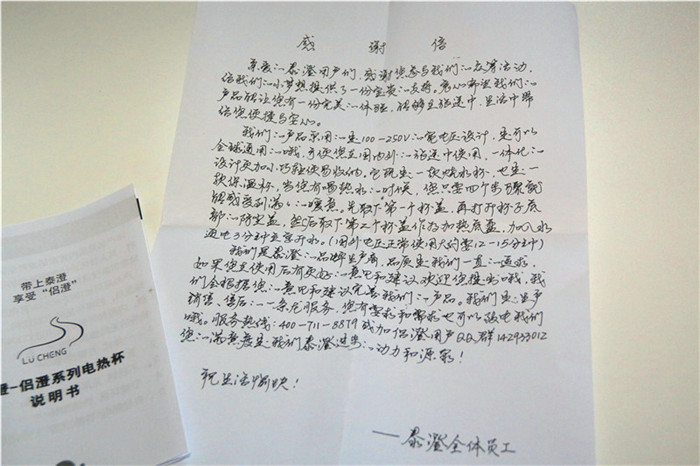 感 谢 信
亲爱的泰澄用户们，感谢您参与我们的众筹活动，
给我们的小梦想提供了一份宝贵的支持。衷心希望我们的
产品能让您有一份完美的体验，能够在旅途中、生活中带
给您便捷与安心。
我们的产品采用的是100-250V的宽电压设计，是可以
全球通用的哦，方便您在国内外的旅途中使用，一体化的
设计更加小巧轻便易收纳。它既是一款烧水杯，也是一
款保温杯，当您有喝热水的时候，您只需四个步骤就
能感受到满满的暖意。先取下第一个杯盖，再打开杯子底
部的防尘盖，然后取下第二个杯盖作为加热底盖，加入水
通电3分钟坐享开水。(国外电压正常使用大约需12-15分钟)
我们是泰澄的品牌生产商，品质是我们一直的追求，
如果您在使用后有更好的意见和建议欢迎您提出哦，我
们会根据您的意见和建议完善我们的产品。我们是生产
销售、售后的一条龙服务，您有要求和需求也可以致电我们
哦。服务热线：400-711-8879或加侣澄用户QQ群142933012
您的满意度是我们泰澄进步的动力和源泉！
祝生活愉快！
——泰澄全体员工
带上泰澄
享受“侣澄”
LU CHENG
澄-侣澄系列电热杯
说明书